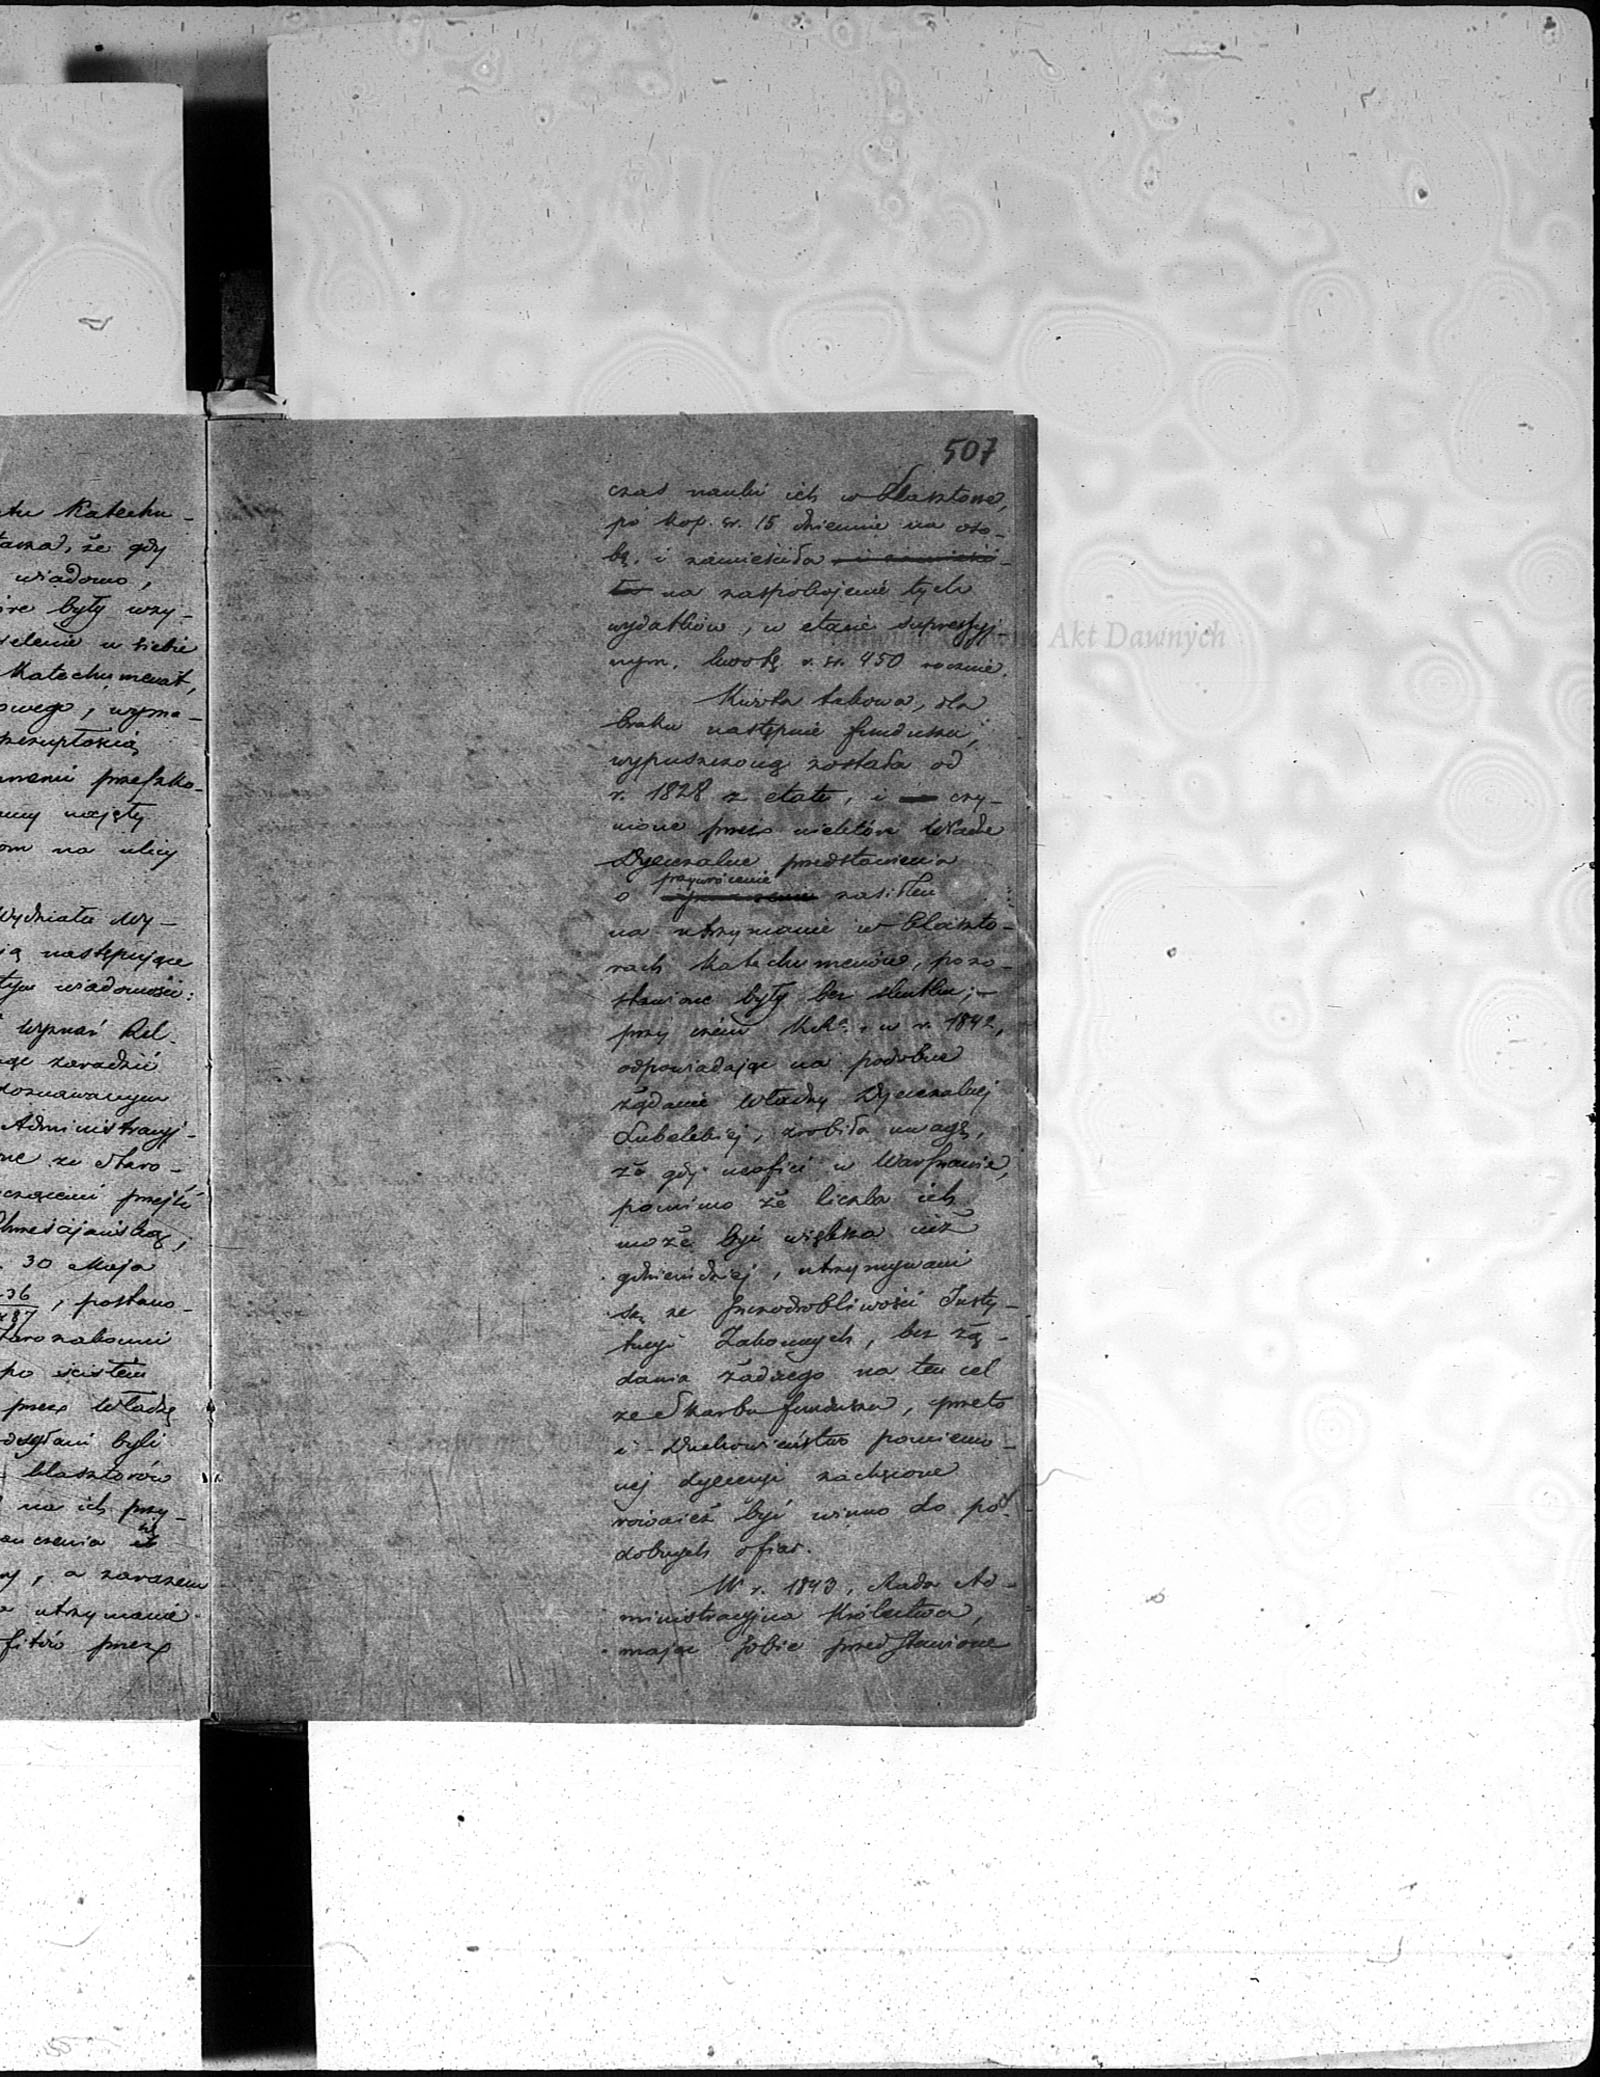 tu Katechu-
że gdy
wiadomo,
były wzy-
u siebie
Katechumenat,
wego, wyma-
przeszko-
najęty
na ulicy
Wydziału Wy-
następujące
wiadomości:
Wyznań Rel.
zaradzić
doznawanym
Administracyj-
ze Staro-
przejść
Chrześcijańską,
30 Maja
36
87, postano-
Starozakonni
po ścisłém
przez Władzę
odsyłani byli
klasztorów
na ich przy-
, a zarazem
utrzymanie
fitów przez
507
czas nauki ich w klasztorze,
po kop. sr. 15 dziennie na oso-
bę, i zamieściła i zamieści-
ła na zaspokojenie tych
wydatków, w etacie supressyj
nym, kwotę r. sr. 450 rocznie.
Kwota takowa, dla
braku następnie funduszu,
wypuszczoną została od
r. 1828 z etatu, i czy-
nione przez niektóre Władze
Dyecezalne przedstawienia
przywrócenie
o zasiłku
na utrzymanie w klaszto-
rach Katechumenów, pozo-
stawione były bez skutku;
przy czém w r. 1842,
odpowiadając na podobne
żądanie Władzy Dyecezalnej
Lubelskiej, zrobiła uwagę,
że gdy neofici w Warszawie,
pomimo że liczba ich
może być większa niż
gdzieindziej, utrzymywani
są ze szczodrobliwości Insty-
tucyi Zakonnych, bez żą-
dania żadnego na ten cel
ze Skarbu funduszu, przeto
i Duchowieństwo pomienio-
nej dyecezyi zachęcone
również być winno do po-
dobnych ofiar.
W r. 1843, Rada Ad-
ministracyjna Królestwa,
mając sobie przedstawione
Akt Dawnych